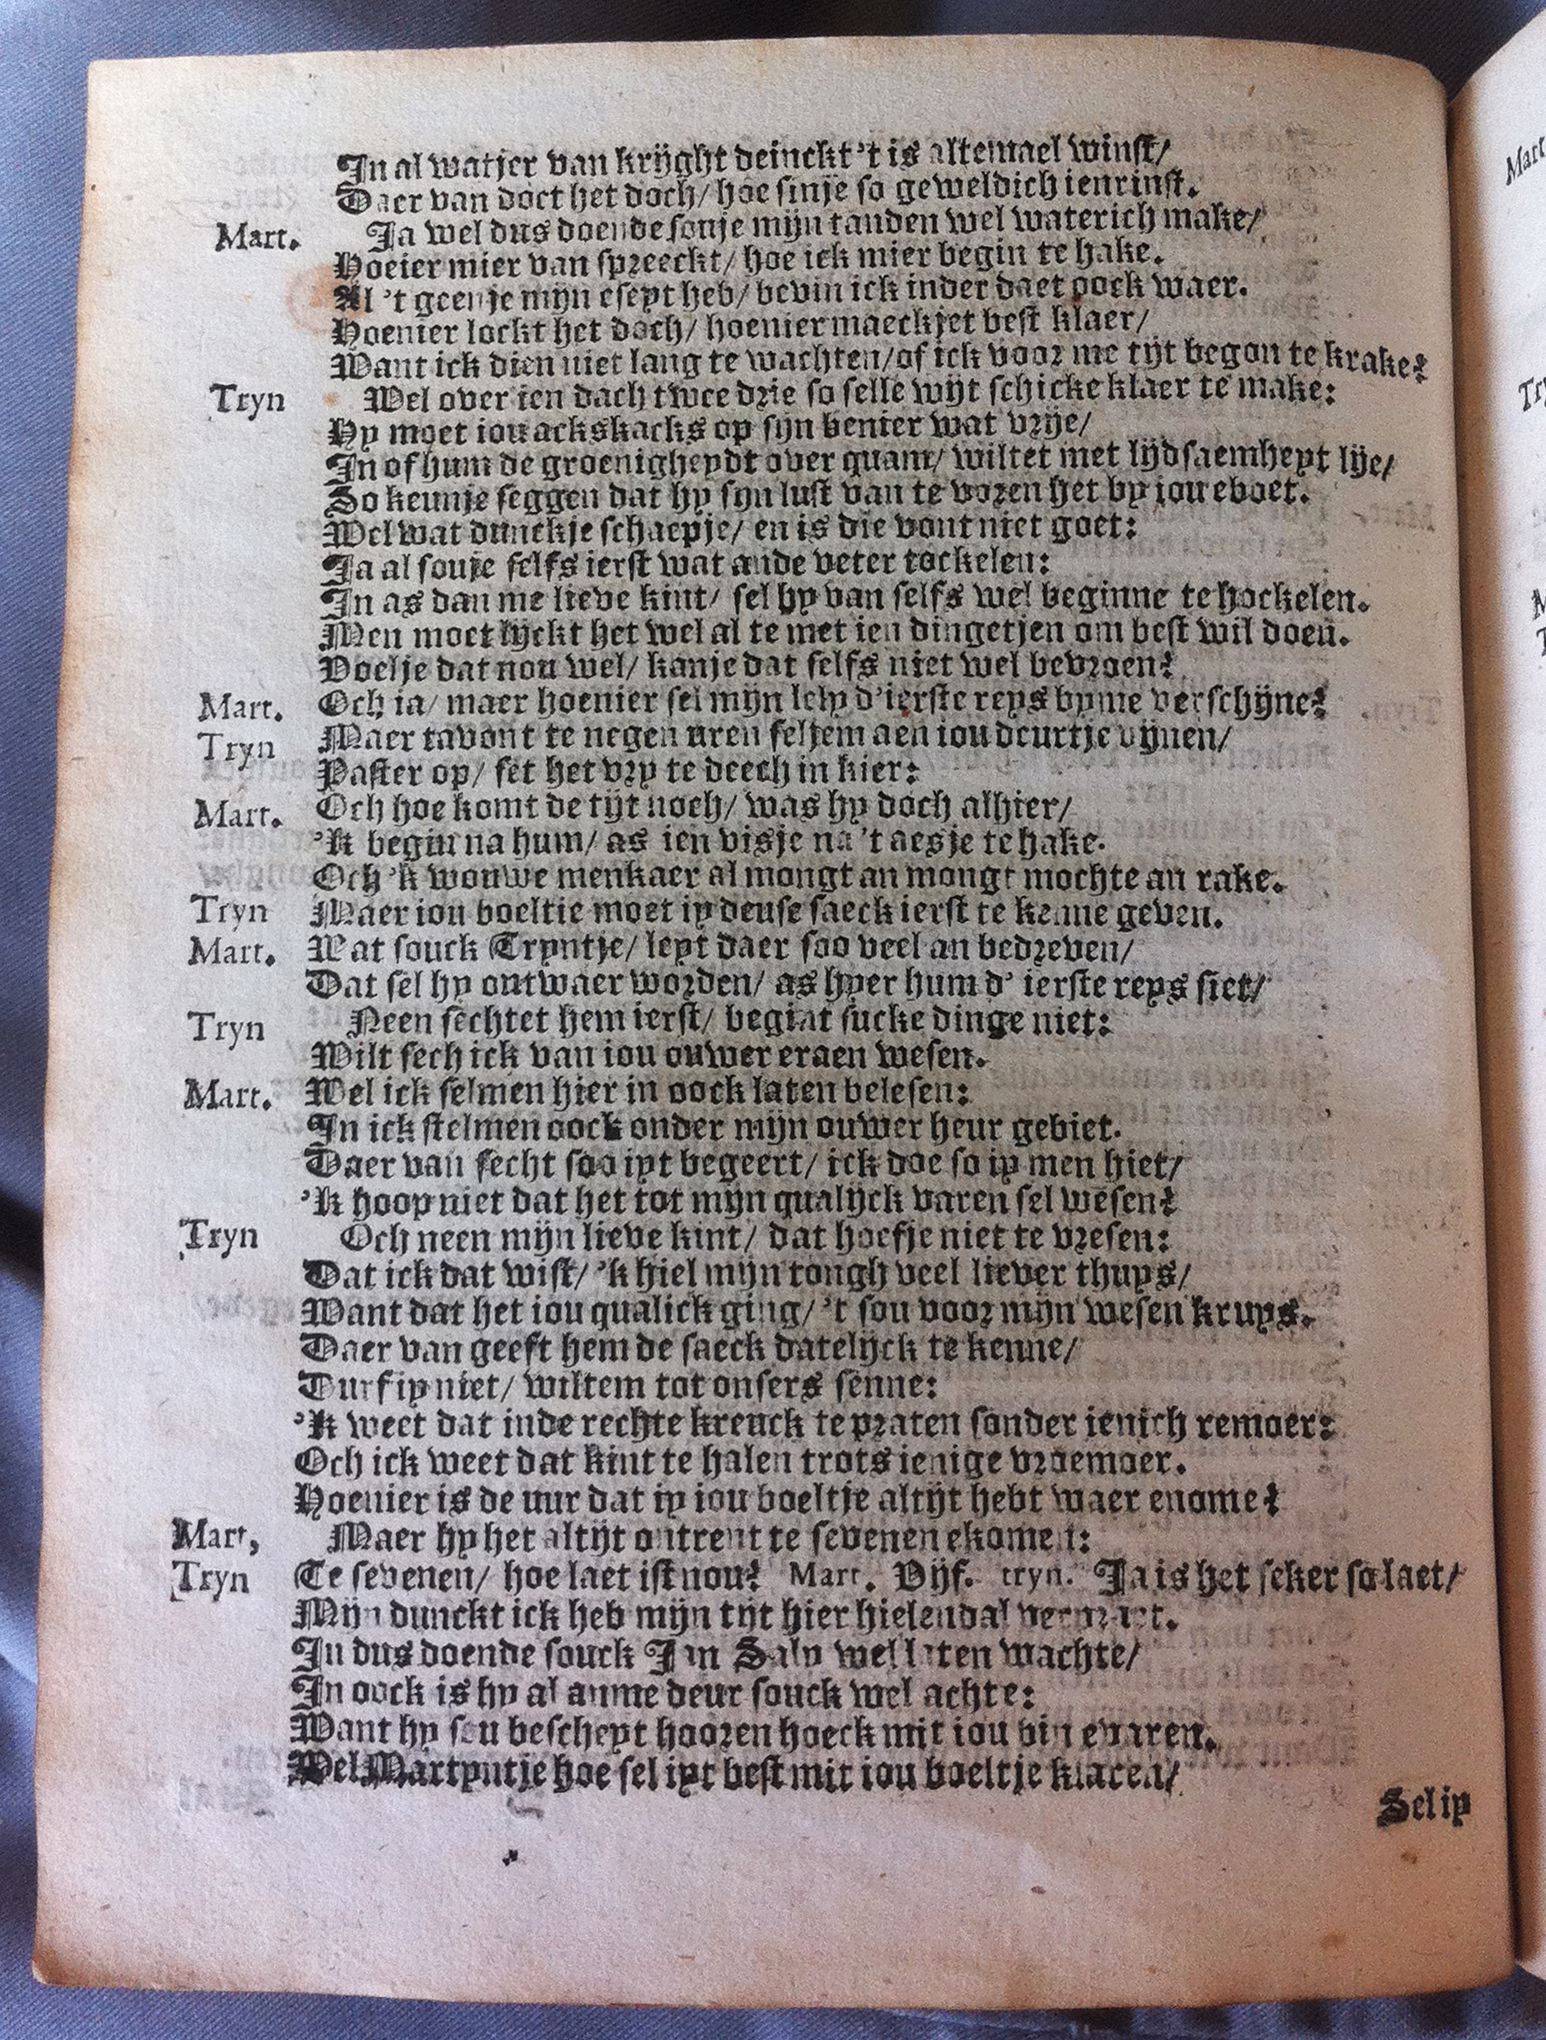 In al watjer van krijght deinckt 't is altemael winst/
Daer van doet het doch/ hoe sinje so geweldich ienrinst.
Mart. Ja wel dus doende sonje mijn tanden wel waterich make/
Hoeier mier van spreeckt/ hoe ick mier begin te hake.
Al 't geenje mijn eseyt heb/ bevin ick inder daet oock waer.
Hoenier lockt het doch/ hoenier maeckjet best klaer/
Want ick dien niet lang te wachten/ of ick voor me tijt begon te krake?
Tryn Wel over ien dach twee drie so selle wijt schicke klaer te make:
Hy moet iou ackskacks op sijn benier wat vrije/
In of hum de groenigheydt over quam/ wiltet met lijdsaemheyt lije/
So keunje seggen dat hy syn lust van te voren het by iou eboet.
Wel wat dunckje schaepje/ en is die vont niet goet:
Ja al souje selfs ierst wat ande veter tockelen:
In as dan me lieve kint/ sel hy van selfs wel beginne te hockelen.
Men moet lijckt het wel al te met ien dingetjen om best wil doen.
Voelje dat nou wel/ kanje dat selfs niet wel bevroen?
Mart. Och ia/ maer hoenier sel mijn lely d'ierste reys byme verschijne?
Tryn Maer tavont te negen uren seljem aen iou deurtje vijnen/
Paster op/ set het vry te deech in kier:
Mart. Och hoe komt de tijt noch/ was hy doch alhier/
'K begin na hum/ as ien visje na 't aesje te hake.
Och 'k wouwe menkaer al mongt an mongt mochte an rake.
Tryn Maer iou boeltie moet iy deuse saeck ierst te kenne geven.
Mart. Wat souck Tryntje/ leyt daer soo veel an bedreven/
Dat sel hy ontwaer worden/ as hyer hum d' ierste reys siet/
Tryn Neen sechtet hem ierst/ begint sucke dinge niet:
Wilt sech ick van iou ouwer eraen wesen.
Mart. Wel ick selmen hier in oock laten belesen:
In ick stelmen oock onder mijn ouwer heur gebiet.
Daer van secht soo iyt begeert/ ick doe so iy men hiet/
'K hoop niet dat het tot mijn qualijck varen sel wesen?
Tryn Och neen mijn lieve kint/ dat hoefje niet te vresen:
Dat ick dat wist/ 'k hiel mijn tongh veel liever thuys/
Want dat het iou qualick ging/ 't sou voor mijn wesen kruys.
Daer van geeft hem de saeck datelijck te kenne/
Durf iy niet/ wiltem tot onsers senne:
'K weet dat inde rechte krenck te praten sonder ienich remoer:
Och ick weet dat kint te halen trots ienige vroemoer.
Hoenier is de uur dat iy iou boeltje altijt hebt waer enome?
Mart, Maer hy het altijt ontrent te sevenen ekomen:
Tryn Te sevenen/ hoe laet ist nou? Mart. Vijf. tryn. Ja is het seker so laet/
Mijn dunckt ick heb mijn tijt hier hielendal
In dus doende souck Jan Saly wel laten wachte/
In oock is hy al anme deur souck wel achte:
Want hy sou bescheyt hooren hoeck mit iou bin evaren.
Wel Martyntje hoe sel iyt best mit iou boeltje klaren/
Sel iy
Mart
Try